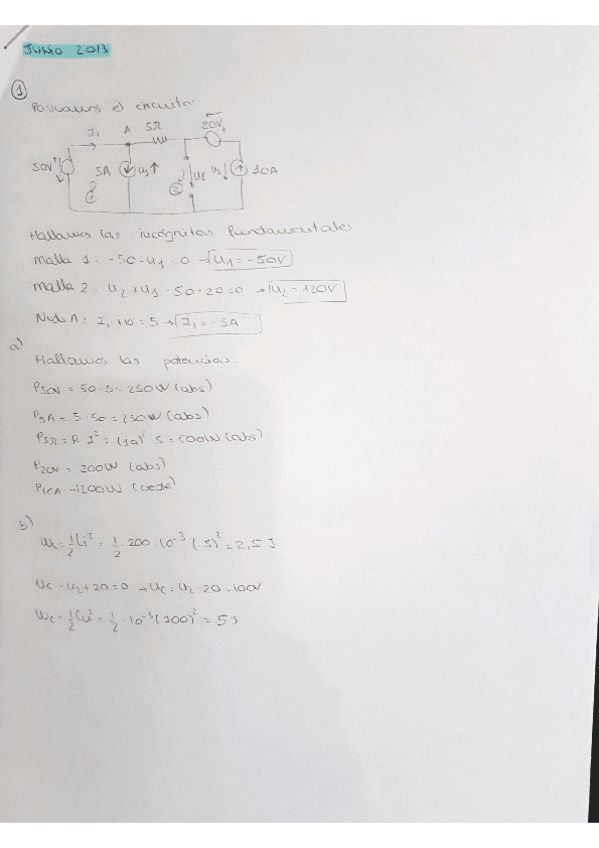 JUNIO 2013
1
Pasivamos el circuito.
I1 A 5Ω 20V +
50V + 5A u1 1 2 uc u2 10A
Hallamos las incógnitas fundamentales
Malla 1: -50-U1=0 → U1=-50V
Malla 2: U2+U1-50-20=0 → U2=120V
Nudo A: I1+10=5 → I1=-5A
a)
Hallamos las potencias.
P50V = 50·5=250W (abs)
P5A = 5·50=250W (abs)
P5Ω = R I² = (10)² 5=500W (abs)
P20V = 200W (abs)
P10A = 1200W (cede)
b)
WL=½Li²= ½·200·10⁻³ (-5)²=2,5J
Uc-U2+20=0 → Uc=U2-20=100V
Wc=½Cu²=½·10⁻³(100)²=5J